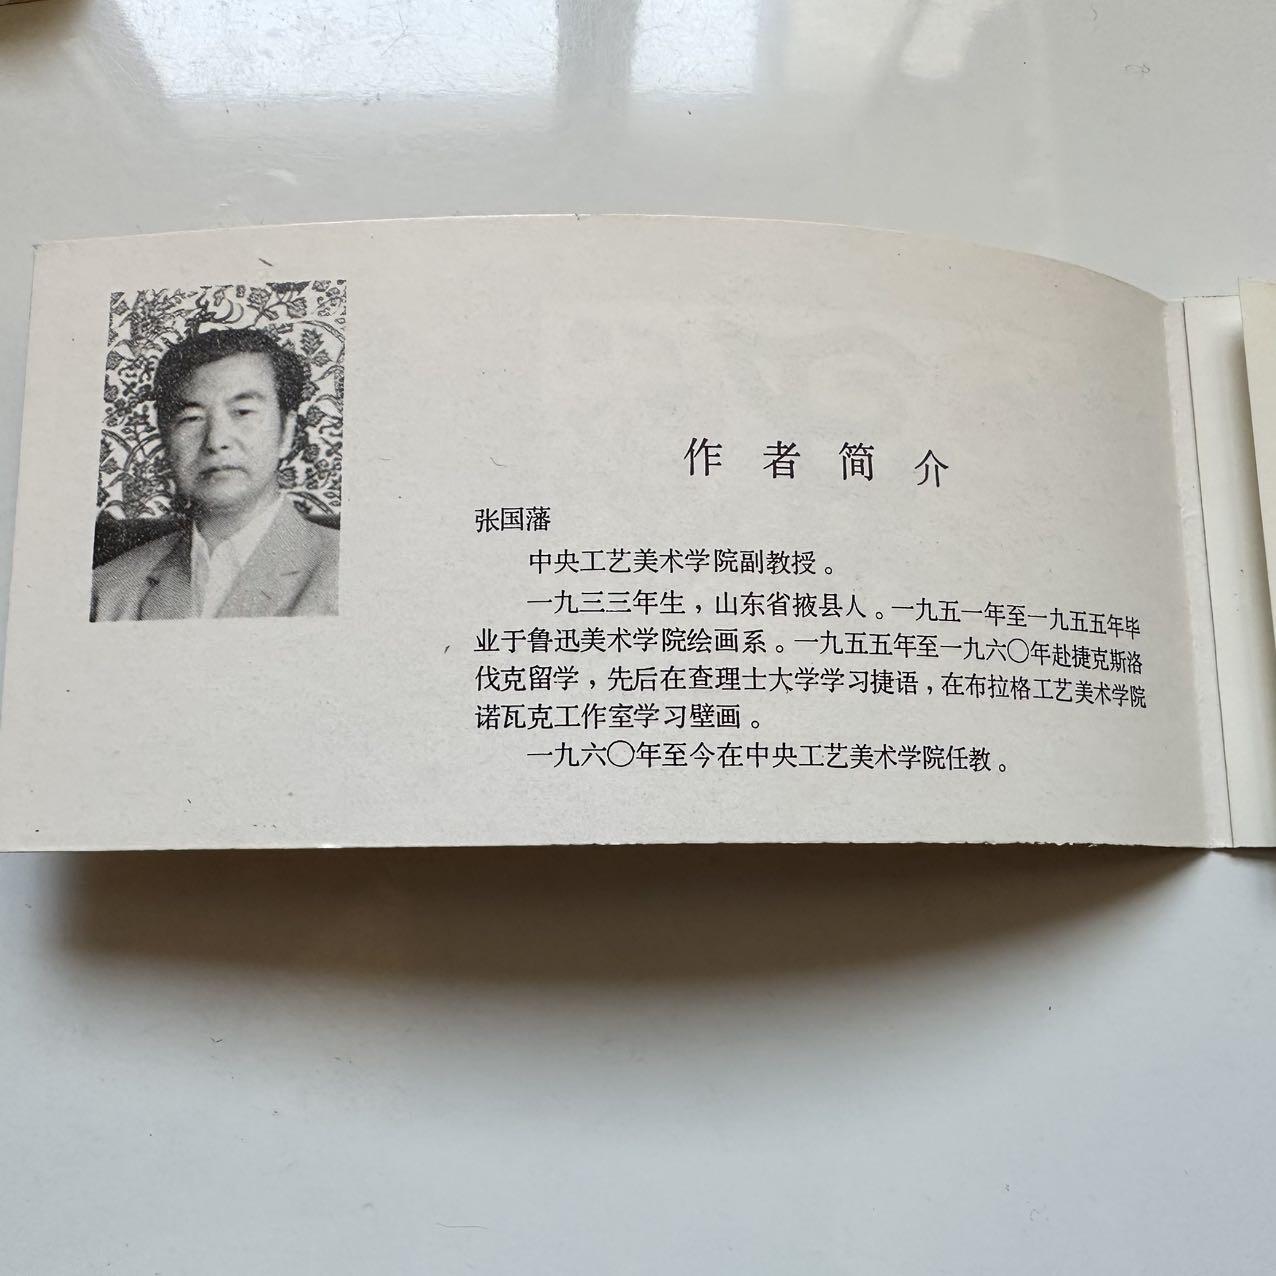 作者简介
张国藩
中央工艺美术学院副教授。
一九三三年生，山东省掖县人。一九五一年至一九五五年毕
业于鲁迅美术学院绘画系。一九五五年至一九六〇年赴捷克斯洛
伐克留学，先后在查理士大学学习捷语，在布拉格工艺美术学院
诺瓦克工作室学习壁画。
一九六〇年至今在中央工艺美术学院任教。